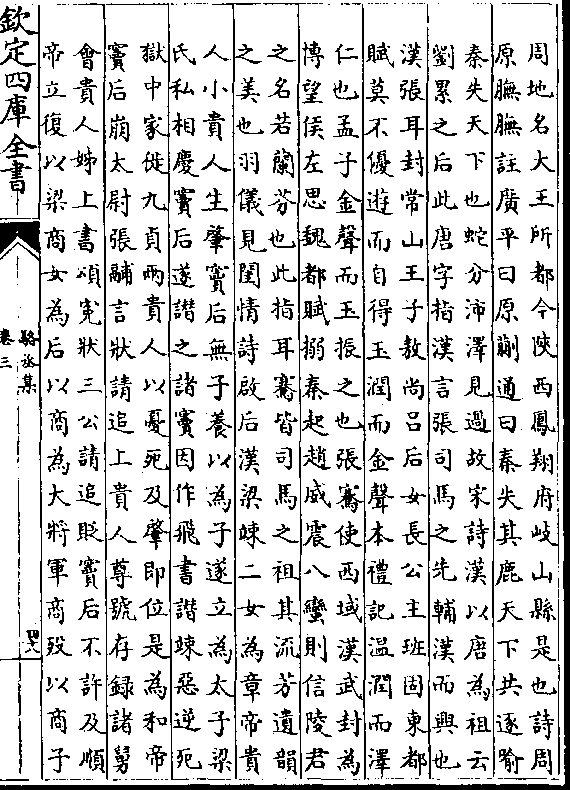 周地名大王所都今陝西鳳翔府岐山縣是也詩周
原膴膴註廣平曰原蒯通曰秦失其鹿天下共逐喻
秦失天下也蛇分沛澤見過故宋詩漢以唐為祖云
劉累之后此唐字指漢言張司馬之先輔漢而興也
漢張耳封常山王子敖尚吕后女長公主班固東都
賦莫不優遊而自得玉潤而金聲本禮記温潤而澤
仁也孟子金聲而玉振之也張騫使西域漢武封為
博望侯左思魏都賦搦秦起趙威震八蠻則信陵君
之名若蘭芬也此指耳騫皆司馬之祖其流芳遺韻
之美也羽儀見閨情詩啟后漢梁竦二女為章帝貴
人小貴人生肇竇后無子養以為子遂立為太子梁
氏私相慶竇后遂譖之諸竇因作飛書譖竦惡逆死
獄中家徙九貞兩貴人以憂死及肇即位是為和帝
竇后崩太尉張酺言狀請追上貴人尊號存録諸舅
會貴人姊上書頌寃狀三公請追貶竇后不許及順
帝立復以梁商女為后以商為大將軍商殁以商子
欽定四庫全書
駱丞集
卷三
四六